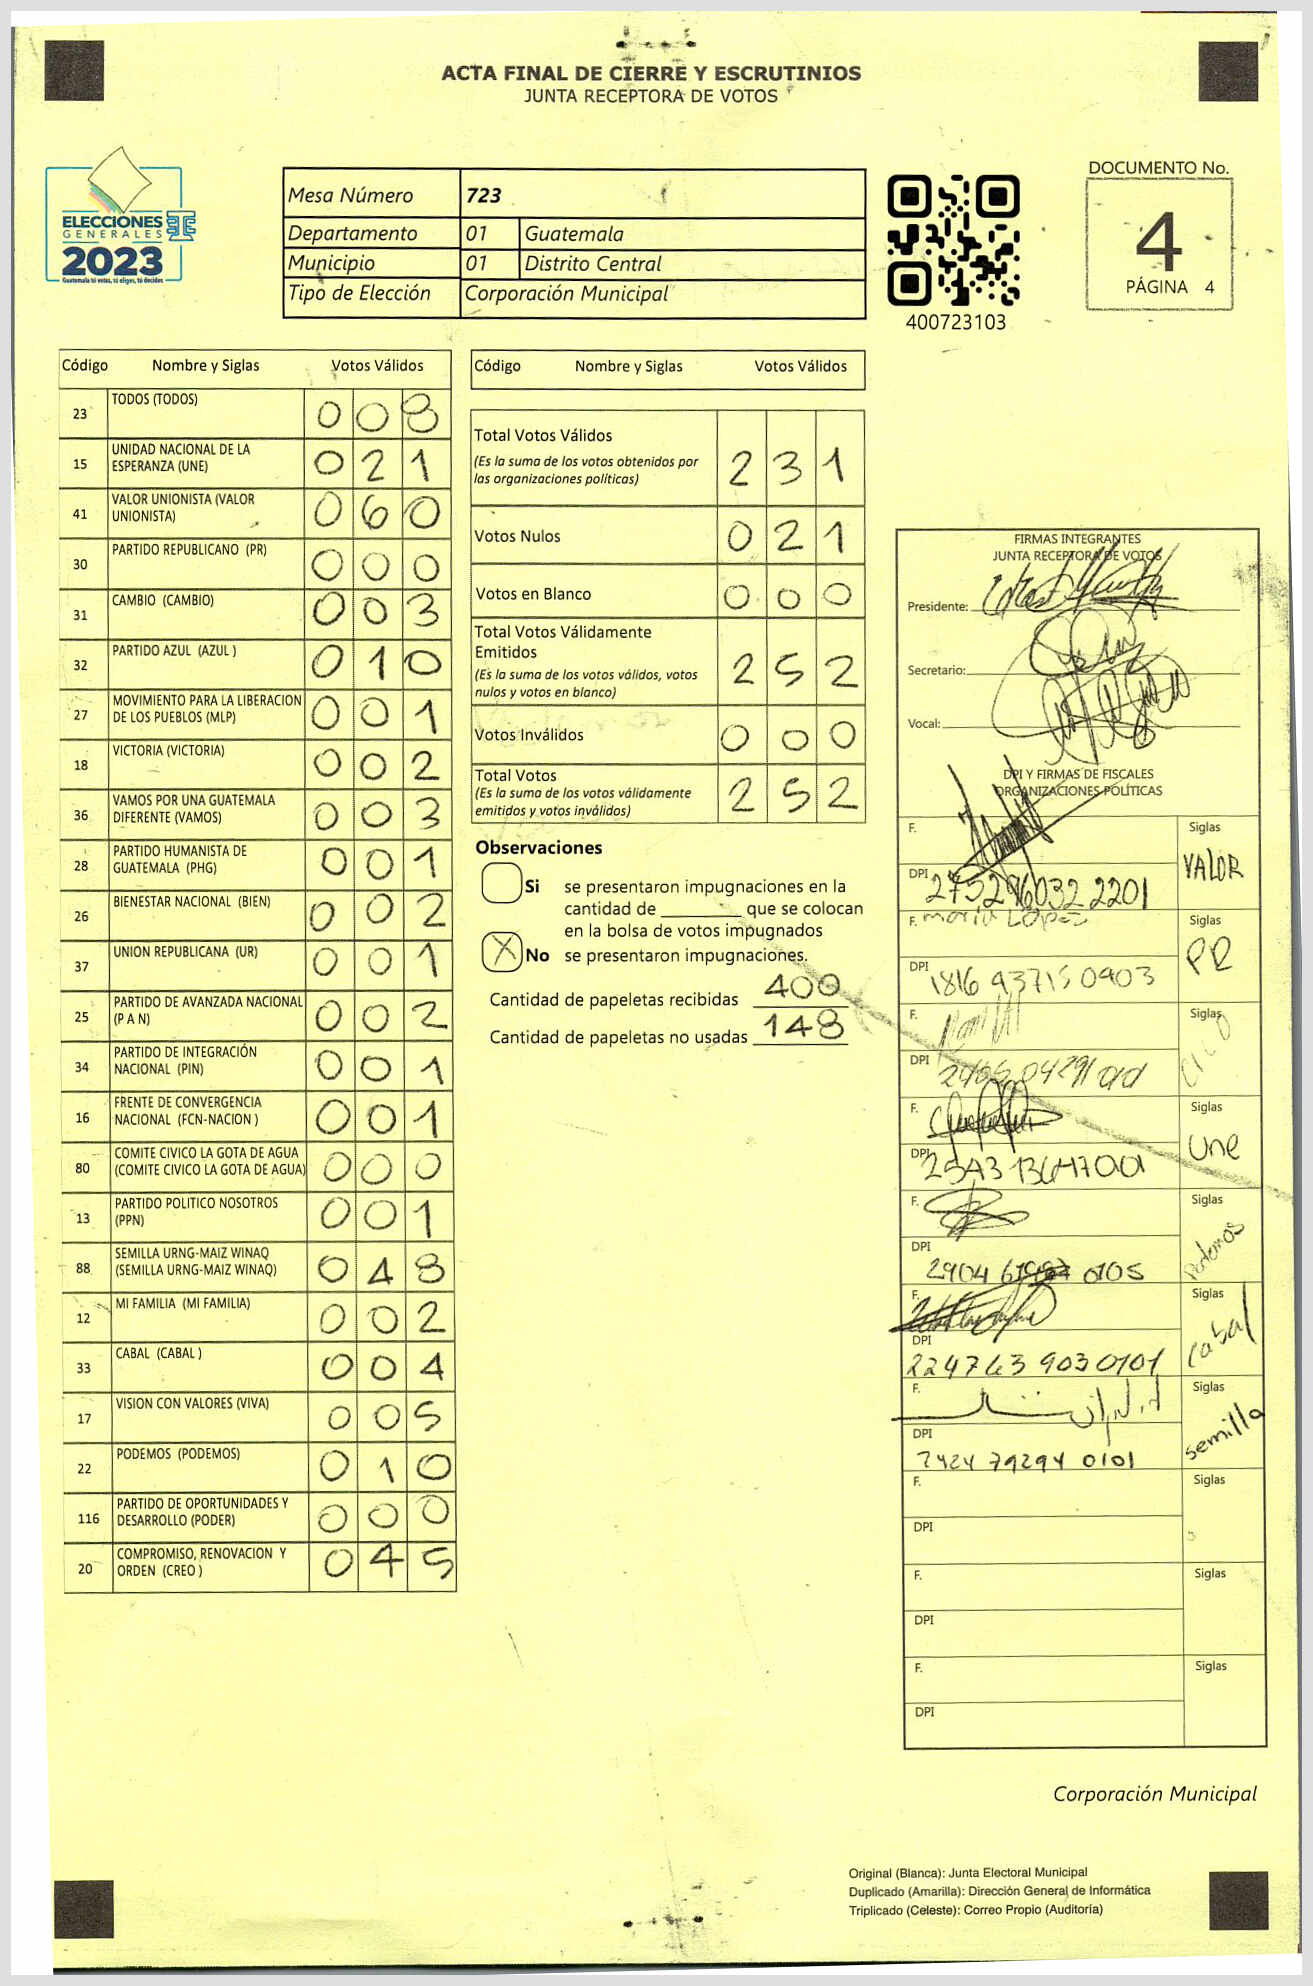 ACTA FINAL DE CIERRE Y ESCRUTINIOS
JUNTA RECEPTORA DE VOTOS
ELECCIONES
GENERALES
2023
Guatemala tú votas, tú eliges, tú decides
Mesa Número 723
Departamento 01 Guatemala
Municipio 01 Distrito Central
Tipo de Elección Corporación Municipal
400723103
DOCUMENTO No.
4
PÁGINA 4
Código Nombre y Siglas Votos Válidos
23 TODOS (TODOS) 0 0 8
15 UNIDAD NACIONAL DE LA ESPERANZA (UNE) 0 2 1
41 VALOR UNIONISTA (VALOR UNIONISTA) 0 6 0
30 PARTIDO REPUBLICANO (PR) 0 0 0
31 CAMBIO (CAMBIO) 0 0 3
32 PARTIDO AZUL (AZUL ) 0 1 0
27 MOVIMIENTO PARA LA LIBERACION DE LOS PUEBLOS (MLP) 0 0 1
18 VICTORIA (VICTORIA) 0 0 2
36 VAMOS POR UNA GUATEMALA DIFERENTE (VAMOS) 0 0 3
28 PARTIDO HUMANISTA DE GUATEMALA (PHG) 0 0 1
26 BIENESTAR NACIONAL (BIEN) 0 0 2
37 UNION REPUBLICANA (UR) 0 0 1
25 PARTIDO DE AVANZADA NACIONAL (P A N) 0 0 2
34 PARTIDO DE INTEGRACIÓN NACIONAL (PIN) 0 0 1
16 FRENTE DE CONVERGENCIA NACIONAL (FCN-NACION ) 0 0 1
80 COMITE CIVICO LA GOTA DE AGUA (COMITE CIVICO LA GOTA DE AGUA) 0 0 0
13 PARTIDO POLITICO NOSOTROS (PPN) 0 0 1
88 SEMILLA URNG-MAIZ WINAQ (SEMILLA URNG-MAIZ WINAQ) 0 4 8
12 MI FAMILIA (MI FAMILIA) 0 0 2
33 CABAL (CABAL ) 0 0 4
17 VISION CON VALORES (VIVA) 0 0 5
22 PODEMOS (PODEMOS) 0 1 0
116 PARTIDO DE OPORTUNIDADES Y DESARROLLO (PODER) 0 0 0
20 COMPROMISO, RENOVACION Y ORDEN (CREO ) 0 4 5
Código Nombre y Siglas Votos Válidos
Total Votos Válidos 2 3 1
(Es la suma de los votos obtenidos por
las organizaciones políticas)
Votos Nulos 0 2 1
Votos en Blanco 0 0 0
Total Votos Válidamente
Emitidos 2 5 2
(Es la suma de los votos válidos, votos
nulos y votos en blanco)
Votos Inválidos 0 0 0
Total Votos 2 5 2
(Es la suma de los votos válidamente
emitidos y votos inválidos)
Observaciones
Si se presentaron impugnaciones en la
cantidad de ________ que se colocan
en la bolsa de votos impugnados
X No se presentaron impugnaciones.
Cantidad de papeletas recibidas 400
Cantidad de papeletas no usadas 148
FIRMAS INTEGRANTES
JUNTA RECEPTORA DE VOTOS
Presidente:
Secretario:
Vocal:
DPI Y FIRMAS DE FISCALES
ORGANIZACIONES POLÍTICAS
F. Siglas
DPI 275296032 2201 VALOR
F. Maria Lopez Siglas
DPI 1816 93715 0903 PR
F. Siglas
DPI
F. Siglas
DPI Une
F. Siglas
DPI 2904 0105 Podemos
F. Siglas
DPI 224763 903 0101 cabal
F. Siglas
DPI 2424 79294 0101 semilla
F. Siglas
DPI
F. Siglas
DPI
F. Siglas
DPI
Corporación Municipal
Original (Blanca): Junta Electoral Municipal
Duplicado (Amarilla): Dirección General de Informática
Triplicado (Celeste): Correo Propio (Auditoría)